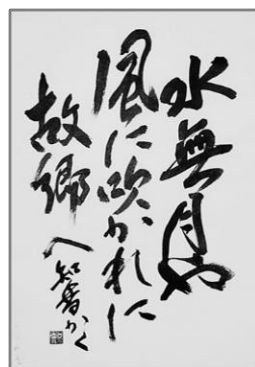 水無月や
風に吹かれに
故郷へ
知香かく